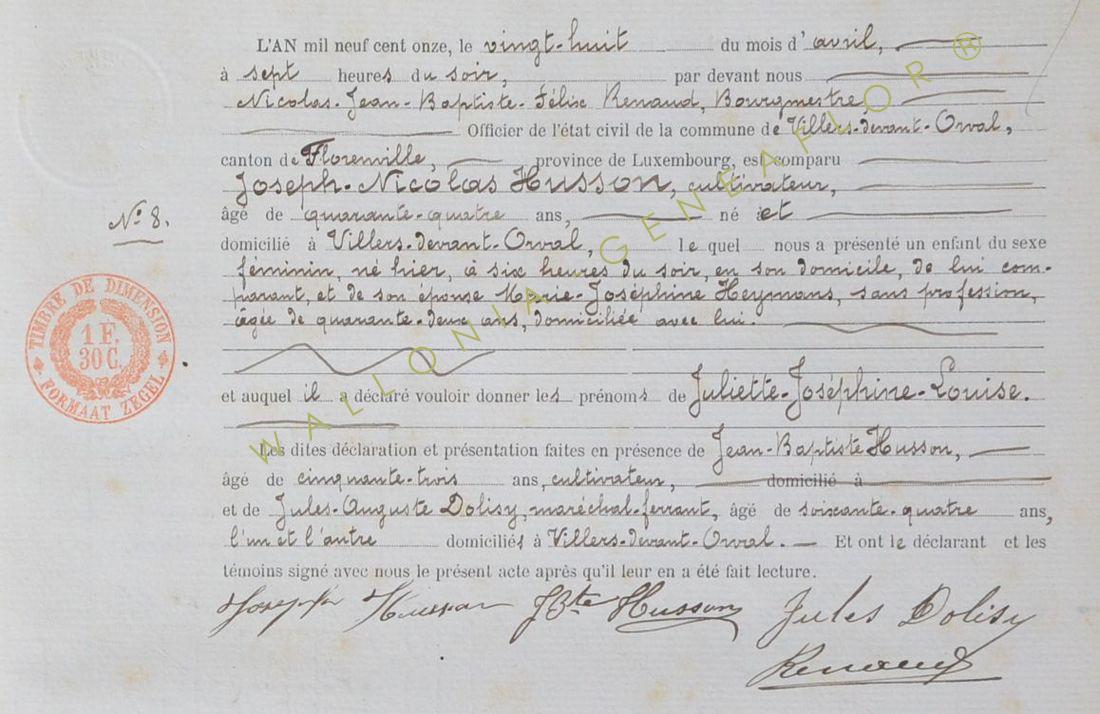 L'AN mil neuf cent onze, le vingt-huit du mois d'avril,
à sept heures du soir, par devant nous
Nicolas-Jean-Baptiste-Félix Renaud, Bourgmestre,
Officier de l'état civil de la commune de Villers-devant-Orval,
canton de Florenville, province de Luxembourg, est comparu
Joseph-Nicolas Husson, cultivateur,
N° 8.
âgé de quarante-quatre ans, né et
domicilié à Villers-devant-Orval, le quel nous a présenté un enfant du sexe
féminin, né hier, à six heures du soir, en son domicile, de lui com-
parant, et de son épouse Marie-Joséphine Heymans, sans profession,
âgée de quarante-deux ans, domiciliée avec lui.
TIMBRE DE DIMENSION
1 F.
30 C.
FORMAAT ZEGEL
et auquel il a déclaré vouloir donner les prénoms de Juliette-Joséphine-Louise.
Les dites déclaration et présentation faites en présence de Jean-Baptiste Husson,
âgé de cinquante-trois ans, cultivateur, domicilié à
et de Jules-Auguste Dolisy, maréchal-ferrant, âgé de soixante-quatre ans,
l'un et l'autre domiciliés à Villers-devant-Orval. Et ont le déclarant et les
témoins signé avec nous le présent acte après qu'il leur en a été fait lecture.
Joseph Husson JBte Husson Jules Dolisy
Renaud
WALLONIA GENEAFLOR ®